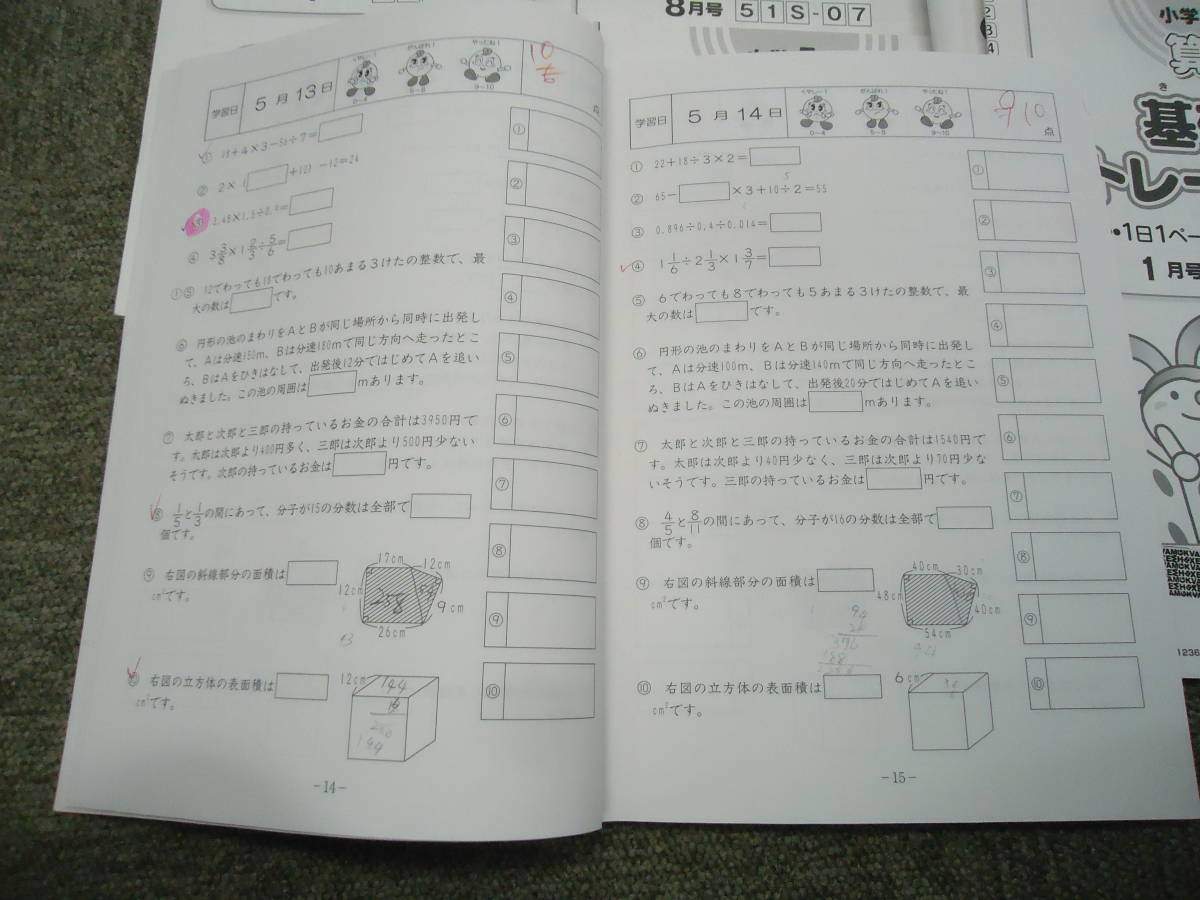 8月号 51S-07
小学
算
基
トレー
•1日1ペー
1月号
1236
学習日 5月13日
くやしい! がんばれ! やったね!
0~4 5~8 9~10
10
点
① 18+4×3-51÷7=
② 2×( +12)-12=24
④ 3 3/8×1 2/3÷5/6=
⑤ 12でわっても18でわっても10あまる3けたの整数で、最
大の数は です。
⑥ 円形の池のまわりをAとBが同じ場所から同時に出発し
て、Aは分速150m、Bは分速180mで同じ方向へ走ったとこ
ろ、BはAをひきはなして、出発後12分ではじめてAを追い
ぬきました。この池の周囲は mあります。
⑦ 太郎と次郎と三郎の持っているお金の合計は3950円で
す。太郎は次郎より400円多く、三郎は次郎より500円少ない
そうです。次郎の持っているお金は 円です。
⑧ 1/5と1/3の間にあって、分子が15の分数は全部で
個です。
⑨ 右図の斜線部分の面積は
cm²です。
17cm 12cm
12cm 258 54 9cm
26cm
⑩ 右図の立方体の表面積は
cm²です。
12cm 144
144
① ② ③ ④ ⑤ ⑥ ⑦ ⑧ ⑨ ⑩
-14-
学習日 5月14日
くやしい! がんばれ! やったね!
0~4 5~8 9~10
9/10
点
① 22+18÷3×2=
② 65- ×3+10÷2=55
5
③ 0.896÷0.4÷0.014=
④ 1 1/6÷2 1/3×1 3/7=
⑤ 6でわっても8でわっても5あまる3けたの整数で、最
大の数は です。
⑥ 円形の池のまわりをAとBが同じ場所から同時に出発し
て、Aは分速100m、Bは分速140mで同じ方向へ走ったとこ
ろ、BはAをひきはなして、出発後20分ではじめてAを追い
ぬきました。この池の周囲は mあります。
⑦ 太郎と次郎と三郎の持っているお金の合計は1540円で
す。太郎は次郎より40円少なく、三郎は次郎より70円少な
いそうです。三郎の持っているお金は 円です。
⑧ 4/5と8/11の間にあって、分子が16の分数は全部で
個です。
⑨ 右図の斜線部分の面積は
cm²です。
40cm 30cm
48cm 40cm
54cm
94
24
376
188
⑩ 右図の立方体の表面積は
cm²です。
6cm 36
① ② ③ ④ ⑤ ⑥ ⑦ ⑧ ⑨ ⑩
-15-